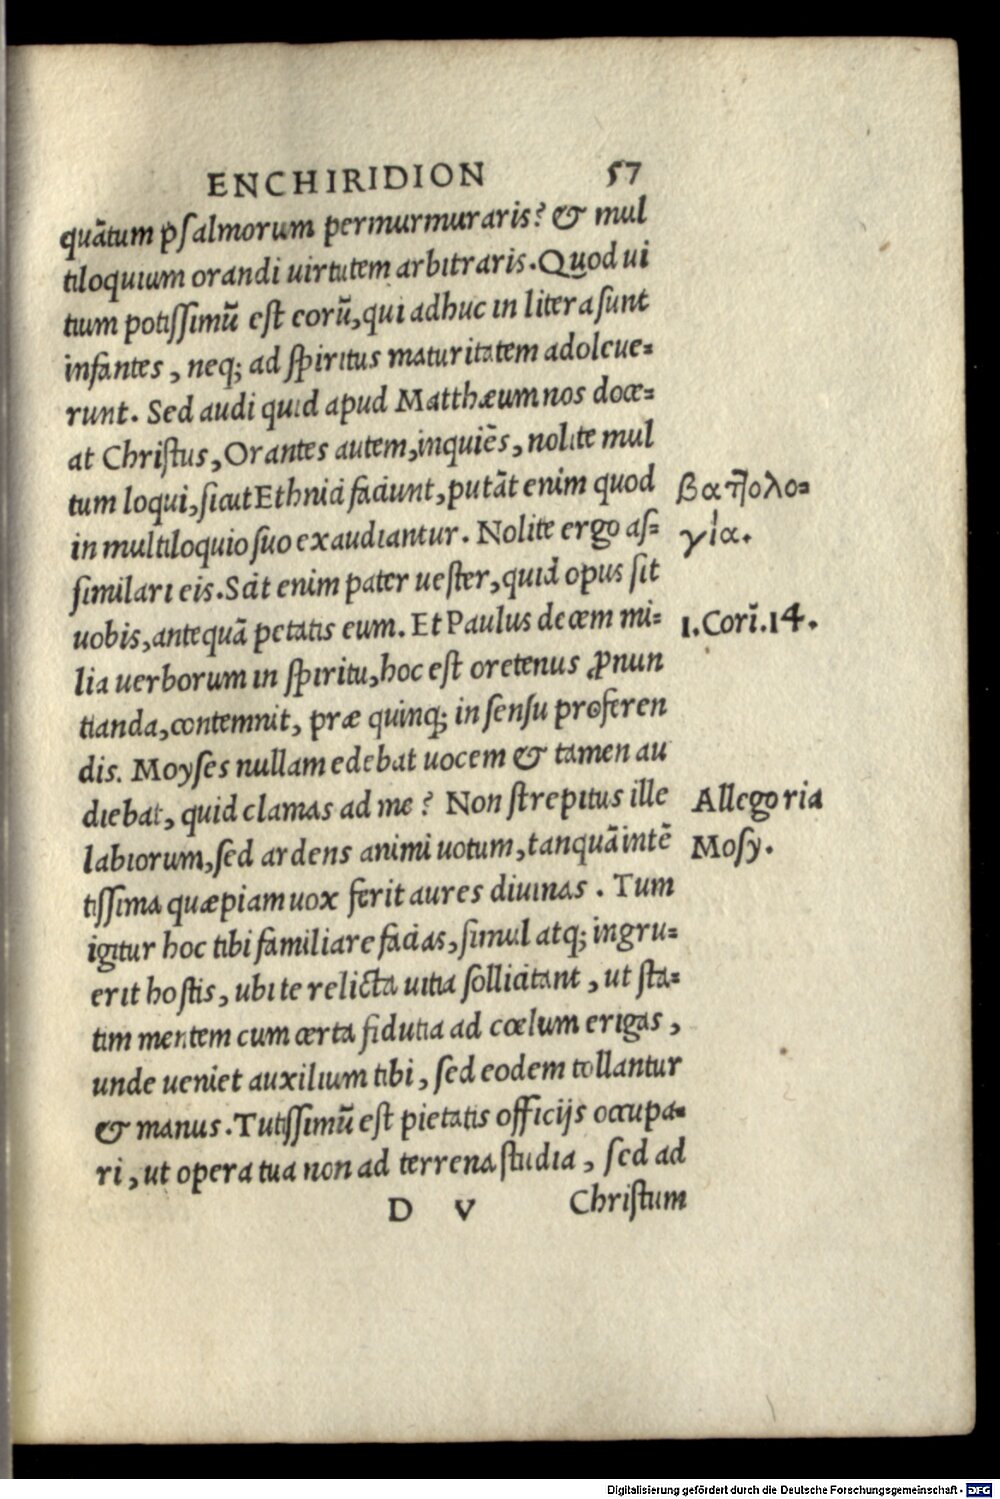 ENCHIRIDION 57
quãtum pſalmorum permurmuraris? & mul
tiloquium orandi uirtutem arbitraris. Quod ui
tium potiſſimũ eſt eorũ, qui adhuc in litera ſunt
infantes, neq; ad ſpiritus maturitatem adoleue=
runt. Sed audi quid apud Matthæum nos doce=
at Chriſtus, Orantes autem, inquiẽs, nolite mul
tum loqui, ſicut Ethnici faciunt, putãt enim quod
in multiloquio ſuo exaudiantur. Nolite ergo aſ=
ſimilari eis. Scit enim pater ueſter, quid opus ſit
uobis, antequã petatis eum. Et Paulus decem mi=
lia uerborum in ſpiritu, hoc eſt oretenus ꝓnun
tianda, contemnit, præ quinq; in ſenſu proferen
dis. Moyſes nullam edebat uocem & tamen au
diebat, quid clamas ad me? Non ſtrepitus ille
labiorum, ſed ardens animi uotum, tanquã intẽ
tiſſima quæpiam uox ferit aures diuinas. Tum
igitur hoc tibi familiare facias, ſimul atq; ingru=
erit hoſtis, ubi te relicta uitia ſollicitant, ut ſta=
tim mentem cum certa fidutia ad cœlum erigas,
unde ueniet auxilium tibi, ſed eodem tollantur
& manus. Tutiſſimũ eſt pietatis officijs occupa=
ri, ut opera tua non ad terrena ſtudia, ſed ad
D V Chriſtum
βατῖολο=
γία.
1. Corĩ. 14.
Allegoria
Moſy.
Digitalisierung gefördert durch die Deutsche Forschungsgemeinschaft - DFG